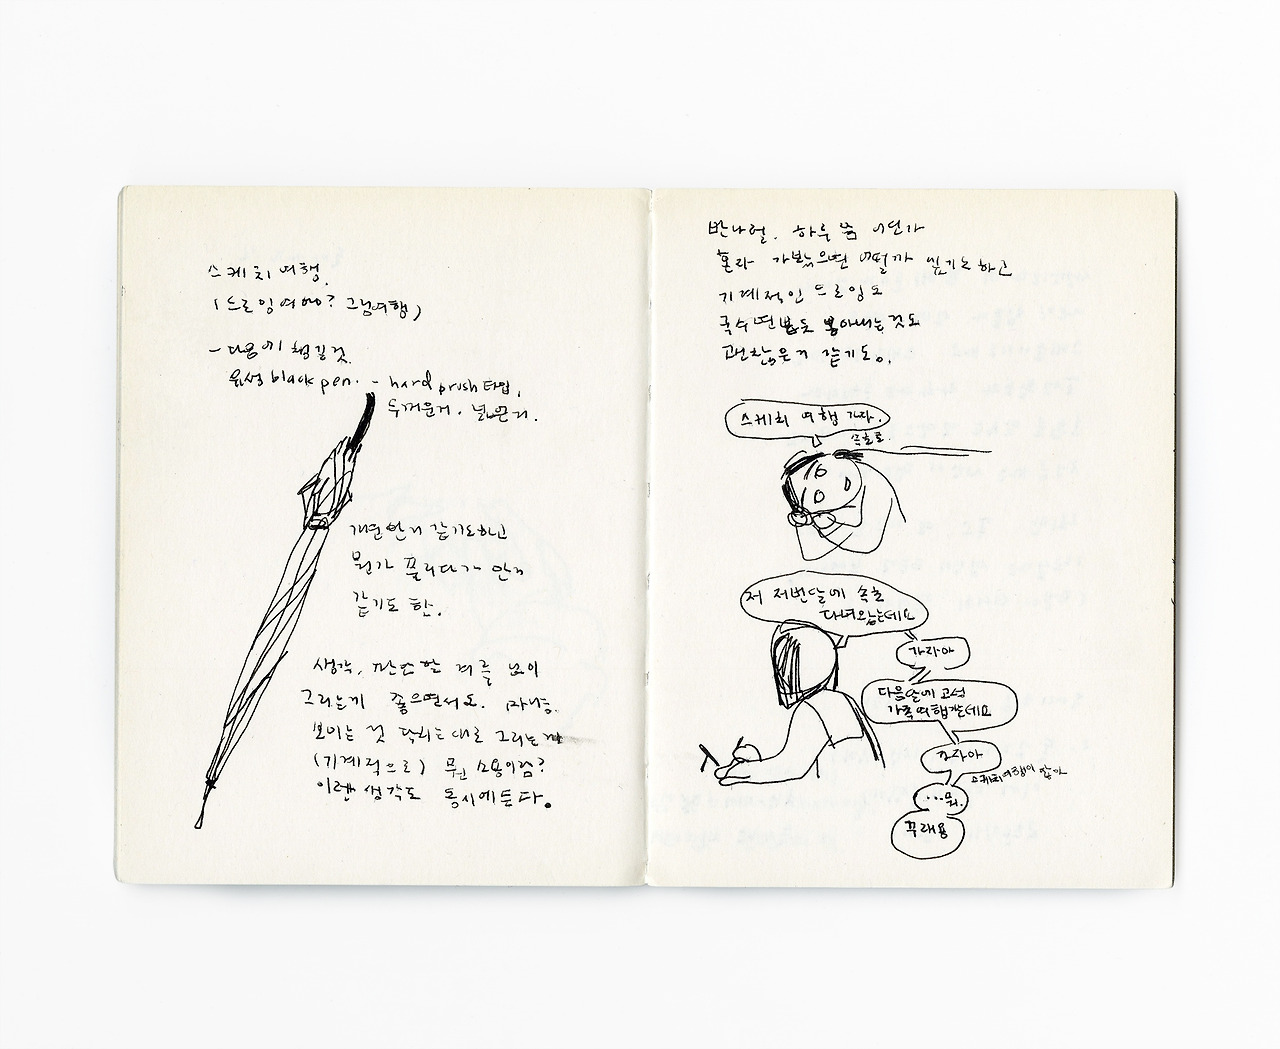 스케치 여행.
(드로잉여행? 그림여행)
- 다음에 챙길것.
유성 black pen. - hard brush 타입,
두꺼운거. 넓은거.
개연한거 같기도하고
뭔가 풀리다가 만거
같기도 한.
생각, 판단할 겨를 없이
그리는게 좋으면서도.
보이는 것 닥치는대로 그리는게
(기계적으로) 뭔 소용이람?
이런 생각도 동시에든다.
반나절. 하루 쯤 어딘가
혼자 가봤으면 어떨까 싶기도 하고
기계적인 드로잉도
국수면발도 뽑아내는것도
괜찮은거 같기도.
스케치 여행 가자.
속초로.
저 저번달에 속초
다녀왔는데요
가자아
다음달에 고성
가족여행갔는데요
가자아
스케치여행이 많아
...뭐.
꾸래용